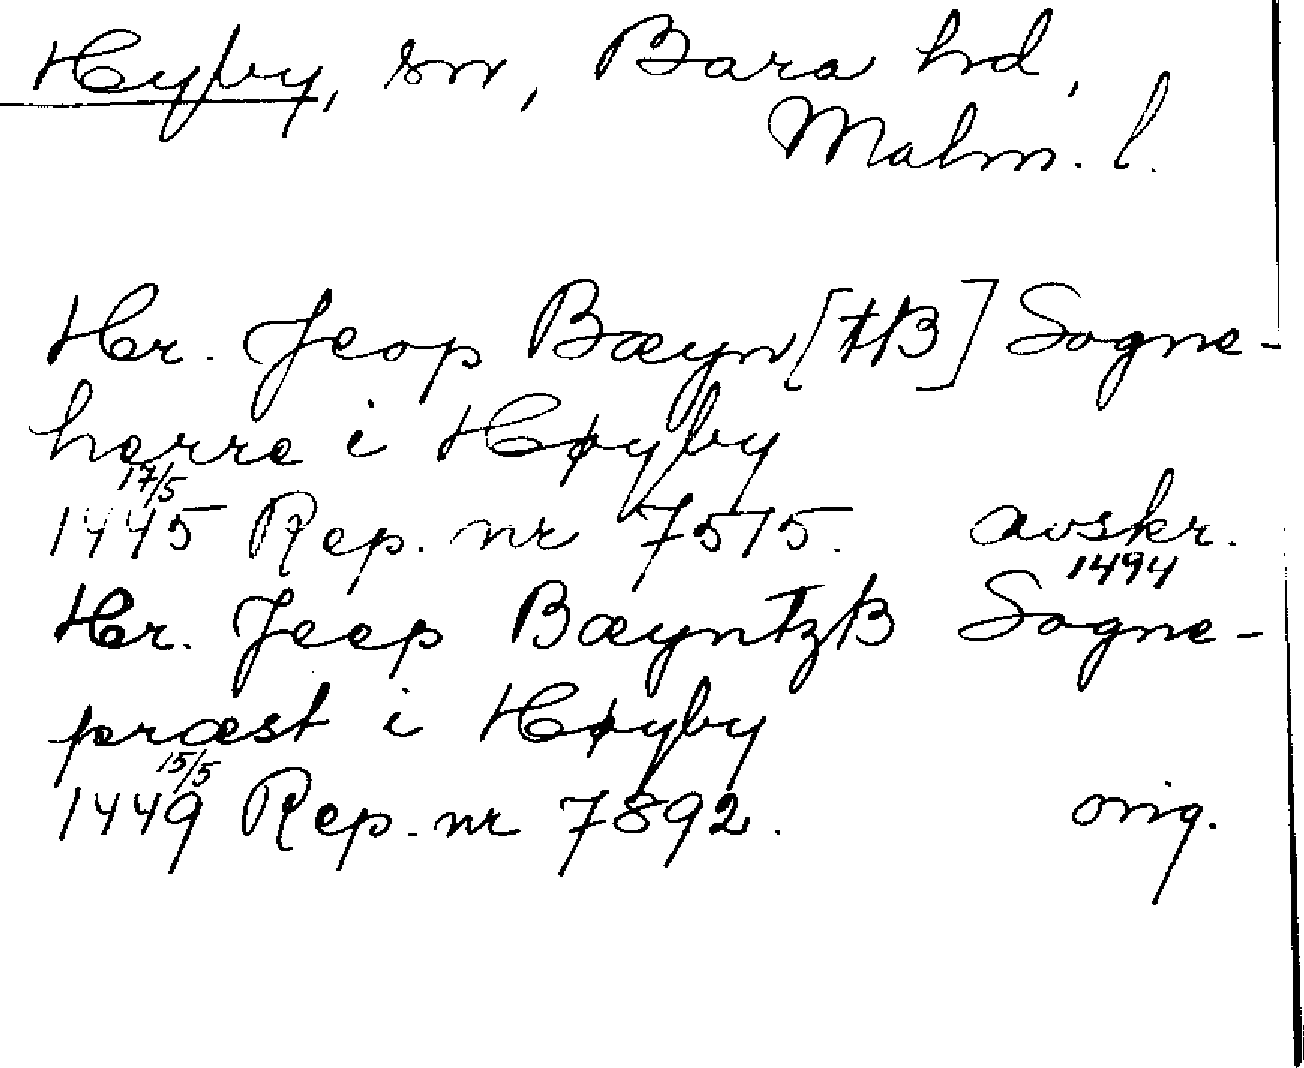 Hyby, sn, Bara hd,
Malm. l.
Hr. Jeop Bæyn[tß] Sogne-
herre i Høyby
17/5
1445 Rep. nr 7515. avskr.
1494
Hr. Jeep Bæyntzß Sogne-
præst i Høyby
15/5
1449 Rep. nr 7892. orig.